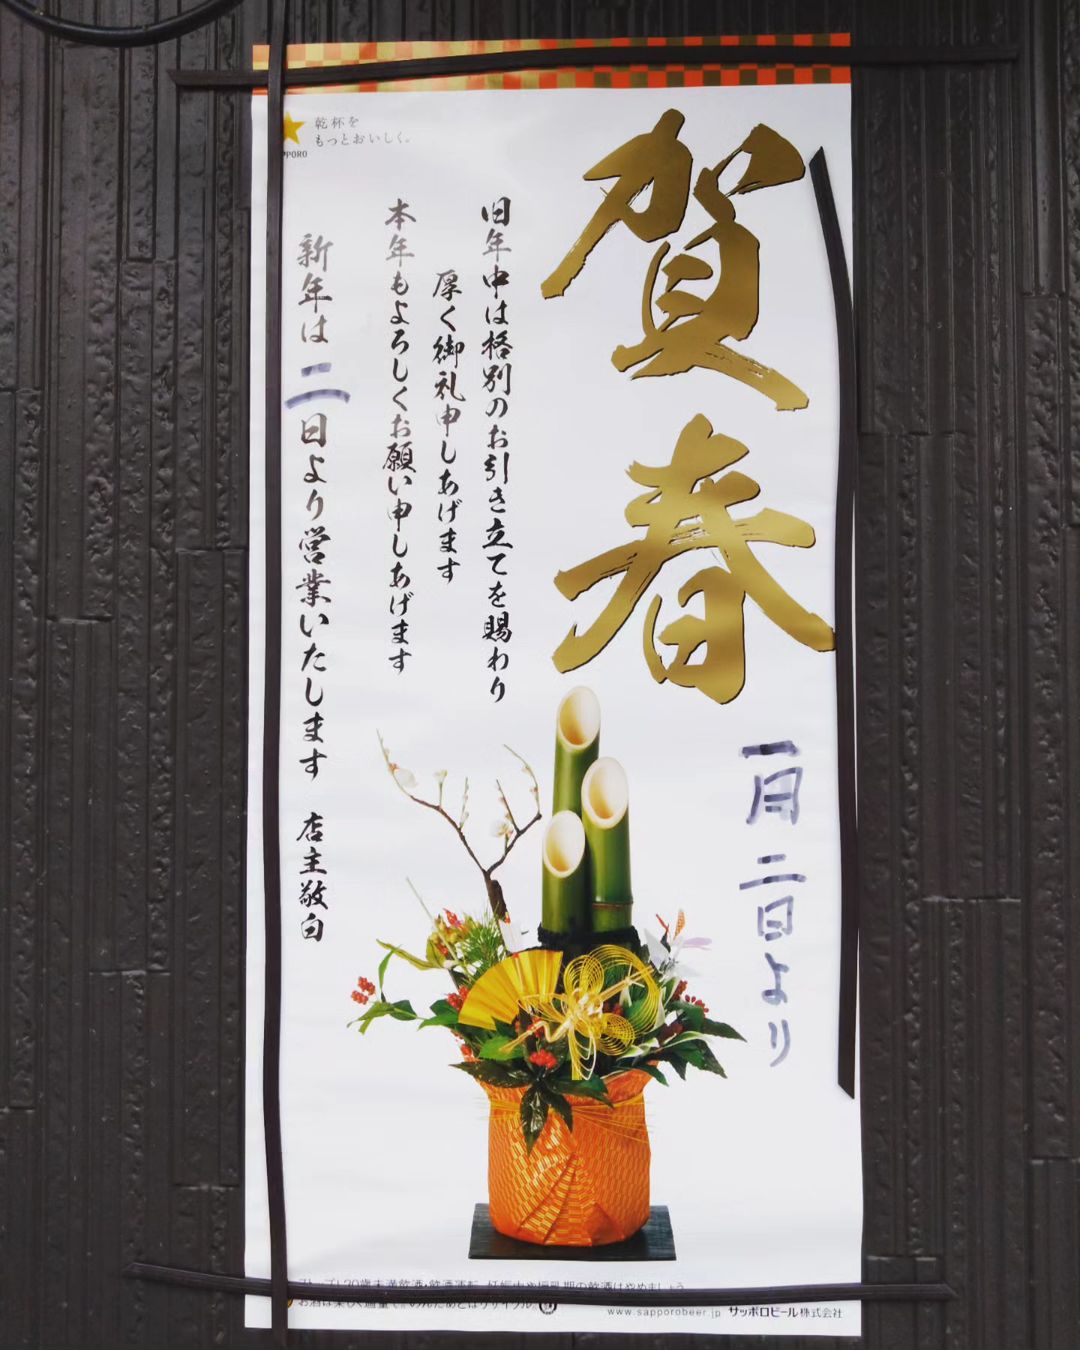 賀春
一月二日より
旧年中は格別のお引き立てを賜わり
厚く御礼申しあげます
本年もよろしくお願い申しあげます
新年は二日より営業いたします 店主敬白
乾杯を
もっとおいしく。
ストップ!20歳未満飲酒・飲酒運転。妊娠中や授乳期の飲酒はやめましょう。
お酒は楽しく適量で。のんだあとはリサイクル。
www.sapporobeer.jp サッポロビール株式会社